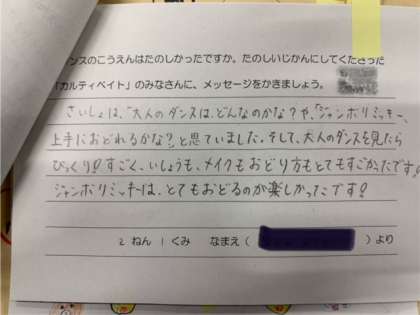 ンスのこうえんはたのしかったですか。たのしいじかんにしてくださった
「カルティベイト」のみなさんに、メッセージをかきましょう。
さいしょは、「大人のダンスは、どんなのかな?や、「ジャンボリミッキー、
上手におどれるかな?」と思ていました。そして、大人のダンスを見たら
びっくり!!すごく、いしょうも、メイクもおどり方もとてもすごかったです!
ジャンボリミッキーは、とてもおどるのが楽しかったです!
2 ねん 1 くみ なまえ ( ) より